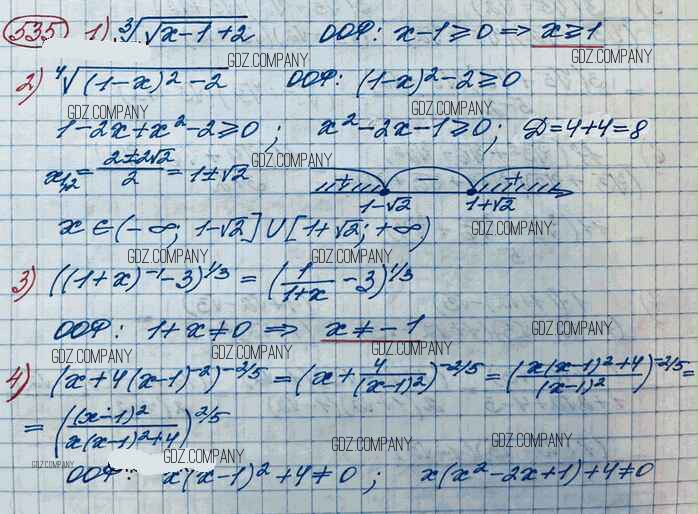 535 1) ∛(√(x-1) + 2) ООФ: x-1⩾0 => x⩾1
GDZ.COMPANY GDZ.COMPANY
2) ⁴√((1-x)² - 2) ООФ: (1-x)²-2⩾0
GDZ.COMPANY GDZ.COMPANY
1-2x+x²-2⩾0 ; x²-2x-1⩾0; Д=4+4=8
x₁,₂ = (2±2√2)/2 = 1±√2 GDZ.COMPANY + - +
1-√2 1+√2
x ∈ (-∞; 1-√2] ∪ [1+√2; +∞) GDZ.COMPANY
GDZ.COMPANY GDZ.COMPANY
3) ((1+x)⁻¹-3)^1/3 = (1/(1+x) - 3)^1/3
ООФ: 1+x≠0 => x≠-1 GDZ.COMPANY
GDZ.COMPANY GDZ.COMPANY GDZ.COMPANY
4) (x+4(x-1)⁻²)^-2/5 = (x + 4/(x-1)²)^-2/5 = ((x(x-1)²+4)/(x-1)²)^-2/5 =
= ((x-1)²/(x(x-1)²+4))^2/5
GDZ.COMPANY GDZ.COMPANY GDZ.COMPANY GDZ.COMPANY
ООФ: x(x-1)²+4≠0 ; x(x²-2x+1)+4≠0